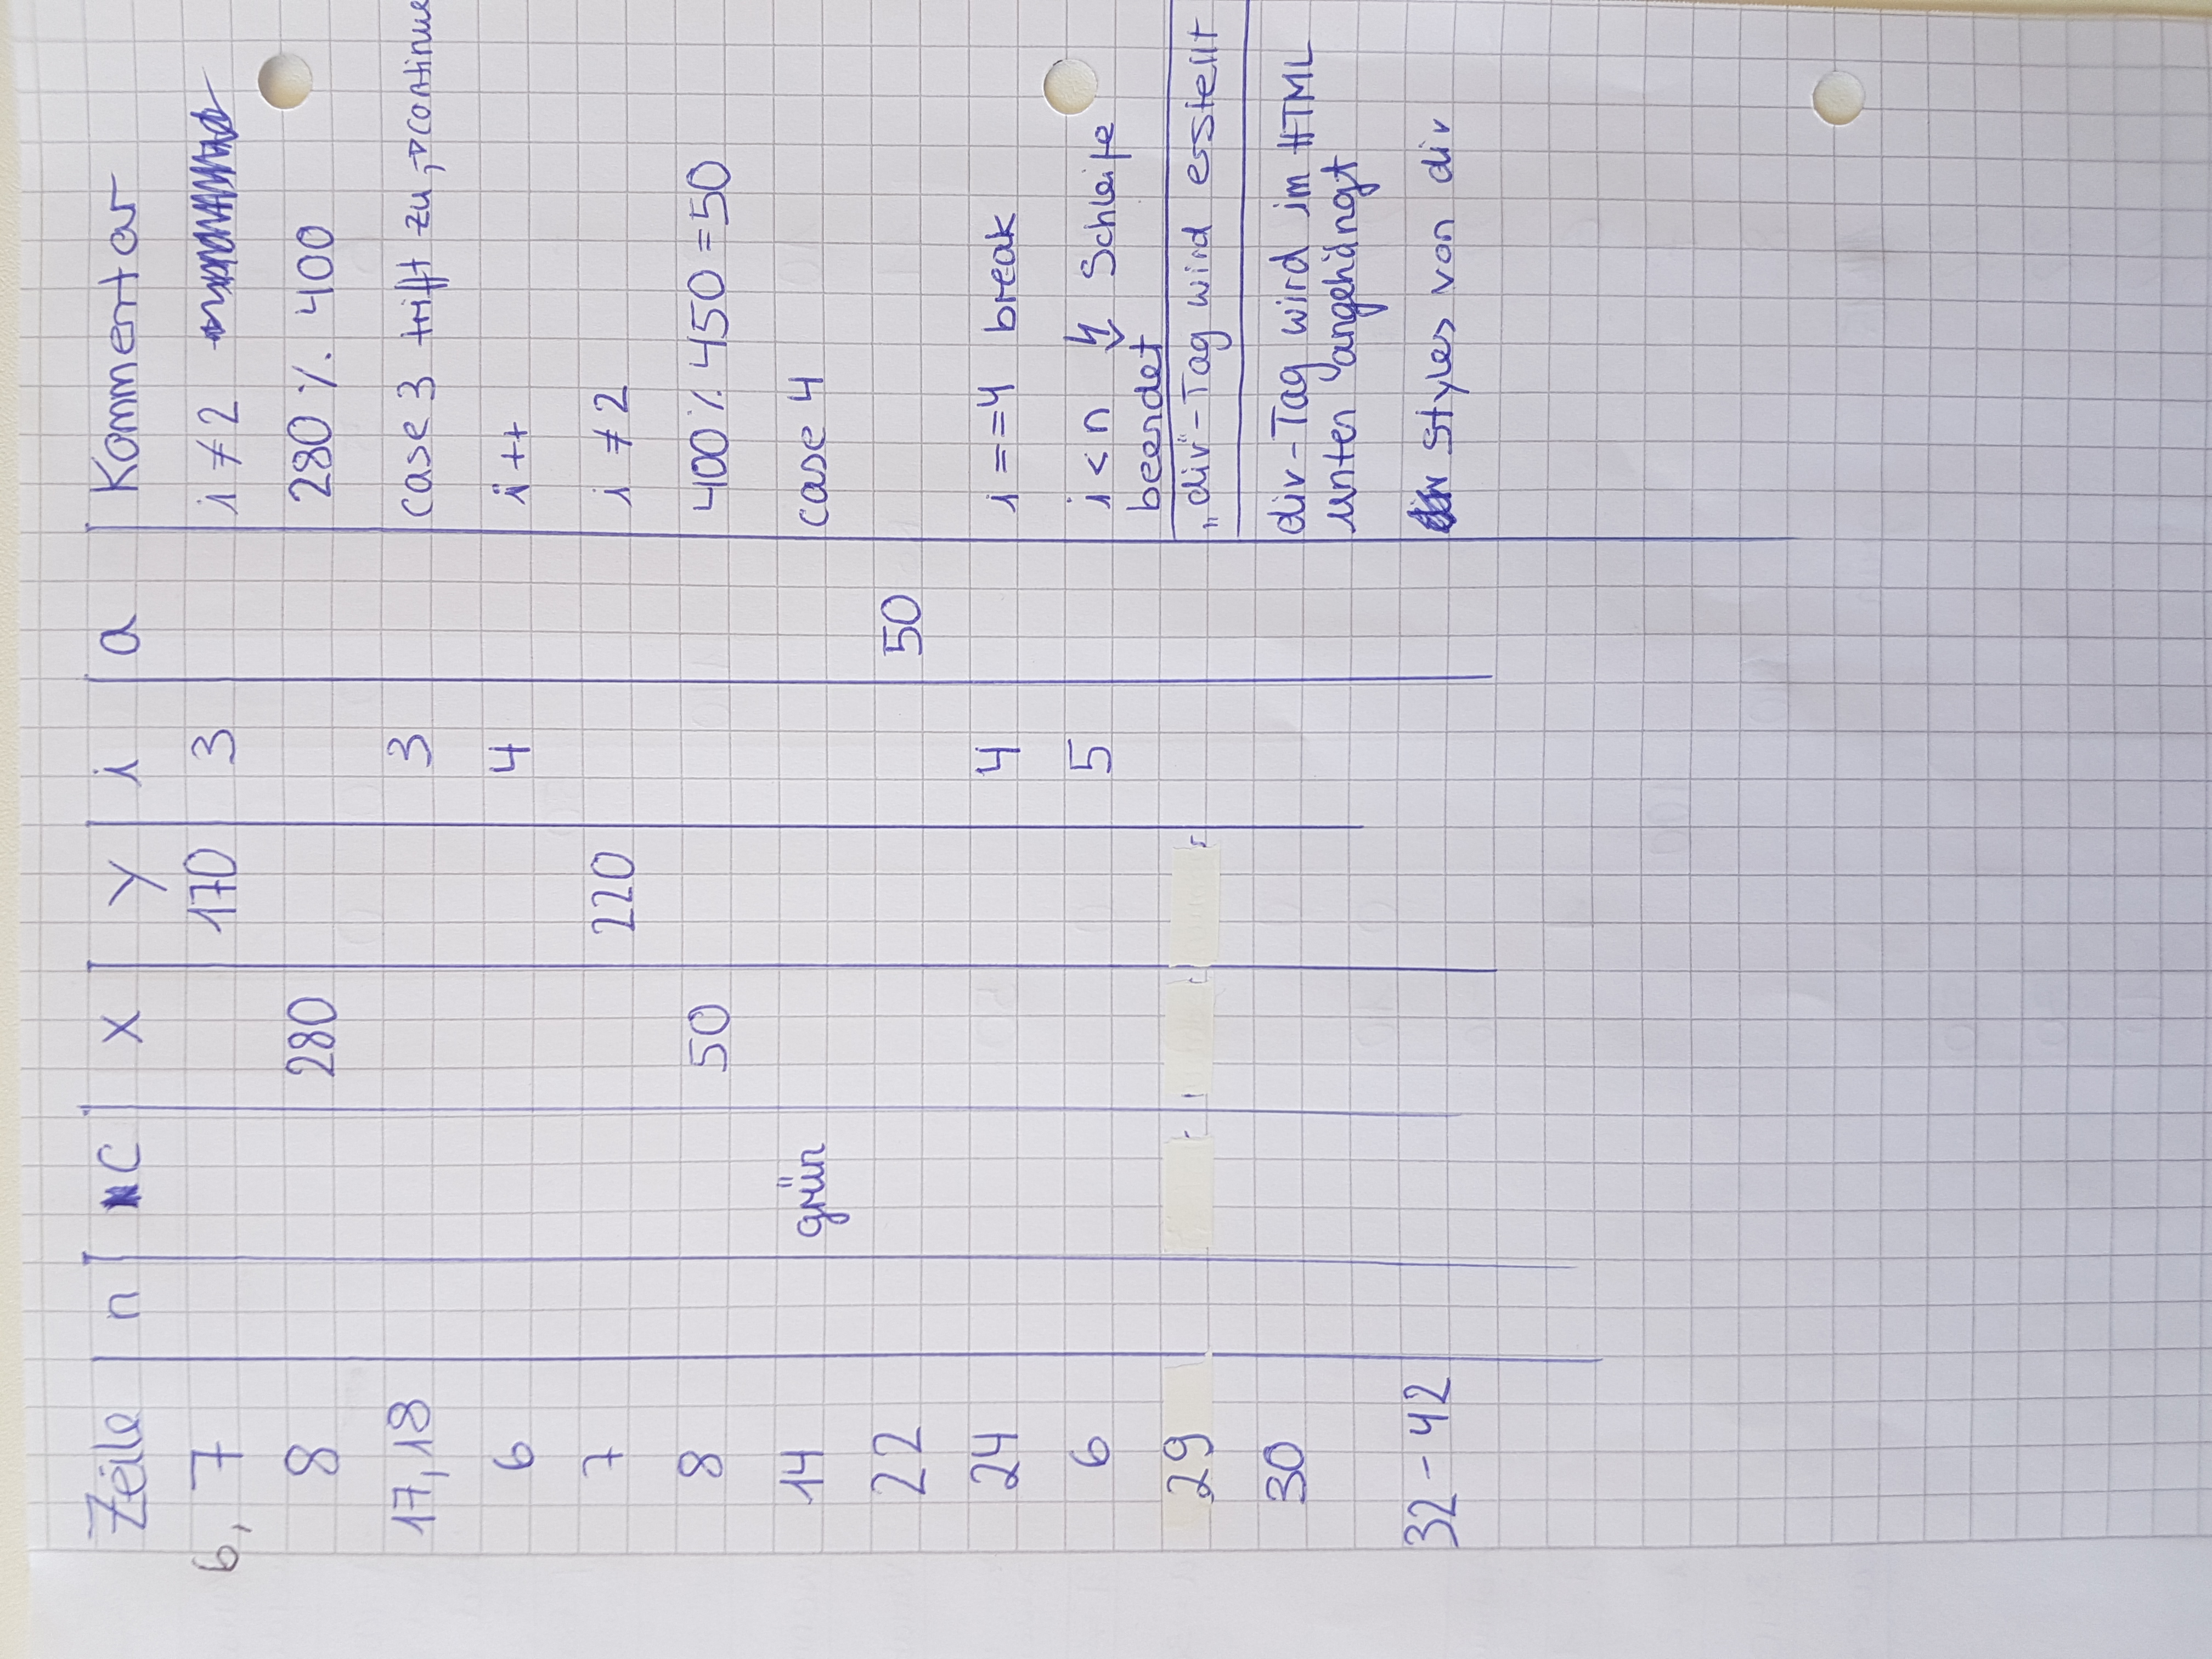 Zeile n C x y i a Kommentar
6, 7 170 3 i ≠ 2
8 280 280 % 400
17,18 3 case 3 trifft zu, → continue
6 4 i++
7 220 i ≠ 2
8 50 400 % 450 = 50
14 grün case 4
22 50
24 4 i == 4 break
6 5 i < n ↯ Schleife
beendet
29 „div"-Tag wird erstellt
30 div-Tag wird im HTML
unten angehängt
32 - 42 styles von div